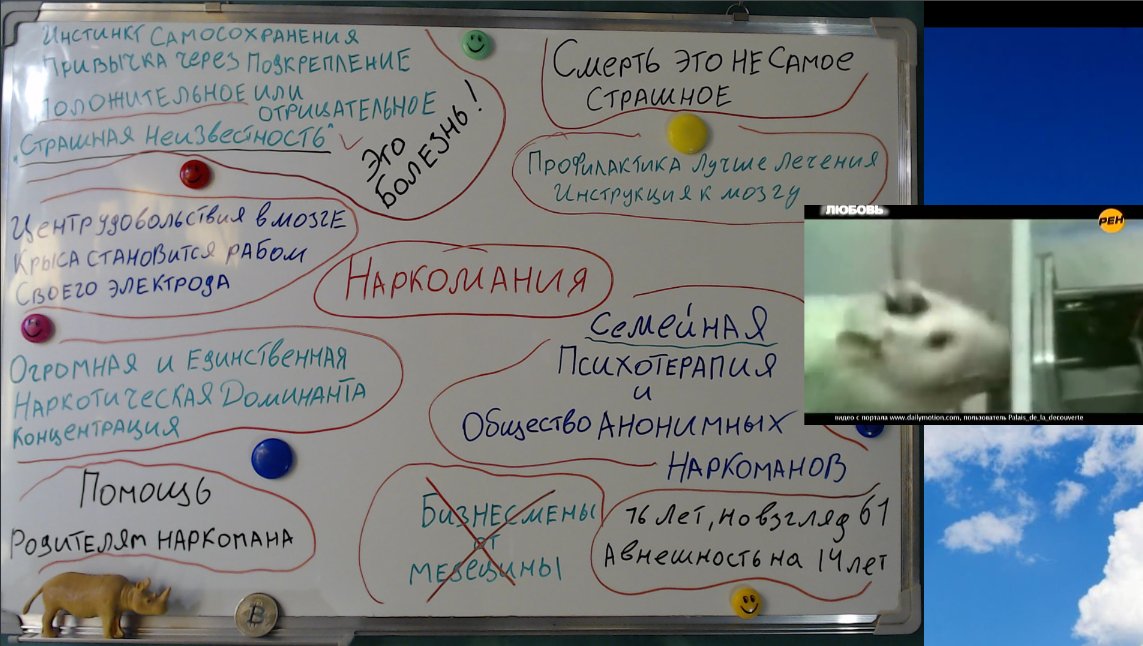 Инстинкт Самосохранения
Привычка через Подкрепление
Положительное или
Отрицательное
"Страшная Неизвестность"
Это
болезнь!
Смерть это не самое
страшное
Профилактика лучше лечения
Инструкция к мозгу
Центр удовольствия в мозге
Крыса становится рабом
Своего электрода
Наркомания
Огромная и Единственная
Наркотическая Доминанта
Концентрация
Семейная
Психотерапия
и
Общество Анонимных
Наркоманов
Помощь
Родителям наркомана
Бизнесмены
от
медецины
16 лет, но взгляд 61
А внешность на 14 лет
ЛЮБОВЬ
РЕН
видео с портала www.dailymotion.com, пользователь Palais_de_la_decouverte